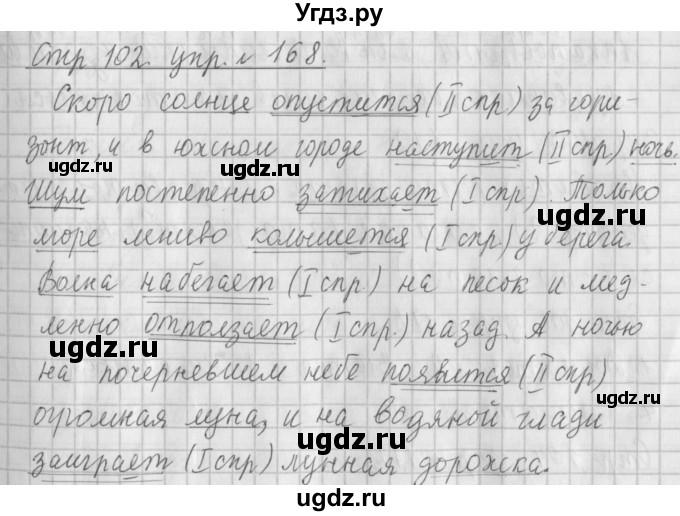 Угдз.ру
Стр 102. упр. № 168.
Скоро солнце опустится (II спр) за гори-
зонт, и в южном городе наступит (II спр) ночь.
ugdz.ru ugdz.ru
Шум постепенно затихает (I спр). Только
ugdz.ru
море лениво колышется (I спр.) у берега.
Волна набегает (I спр) на песок и мед-
ugdz.ru
ленно отползает (I спр.) назад. А ночью
ugdz.ru
на почерневшем небе появится (II спр)
огромная луна, и на водяной глади
ugdz.ru ugdz.ru
заиграет (I спр) лунная дорожка.
ugdz.ru